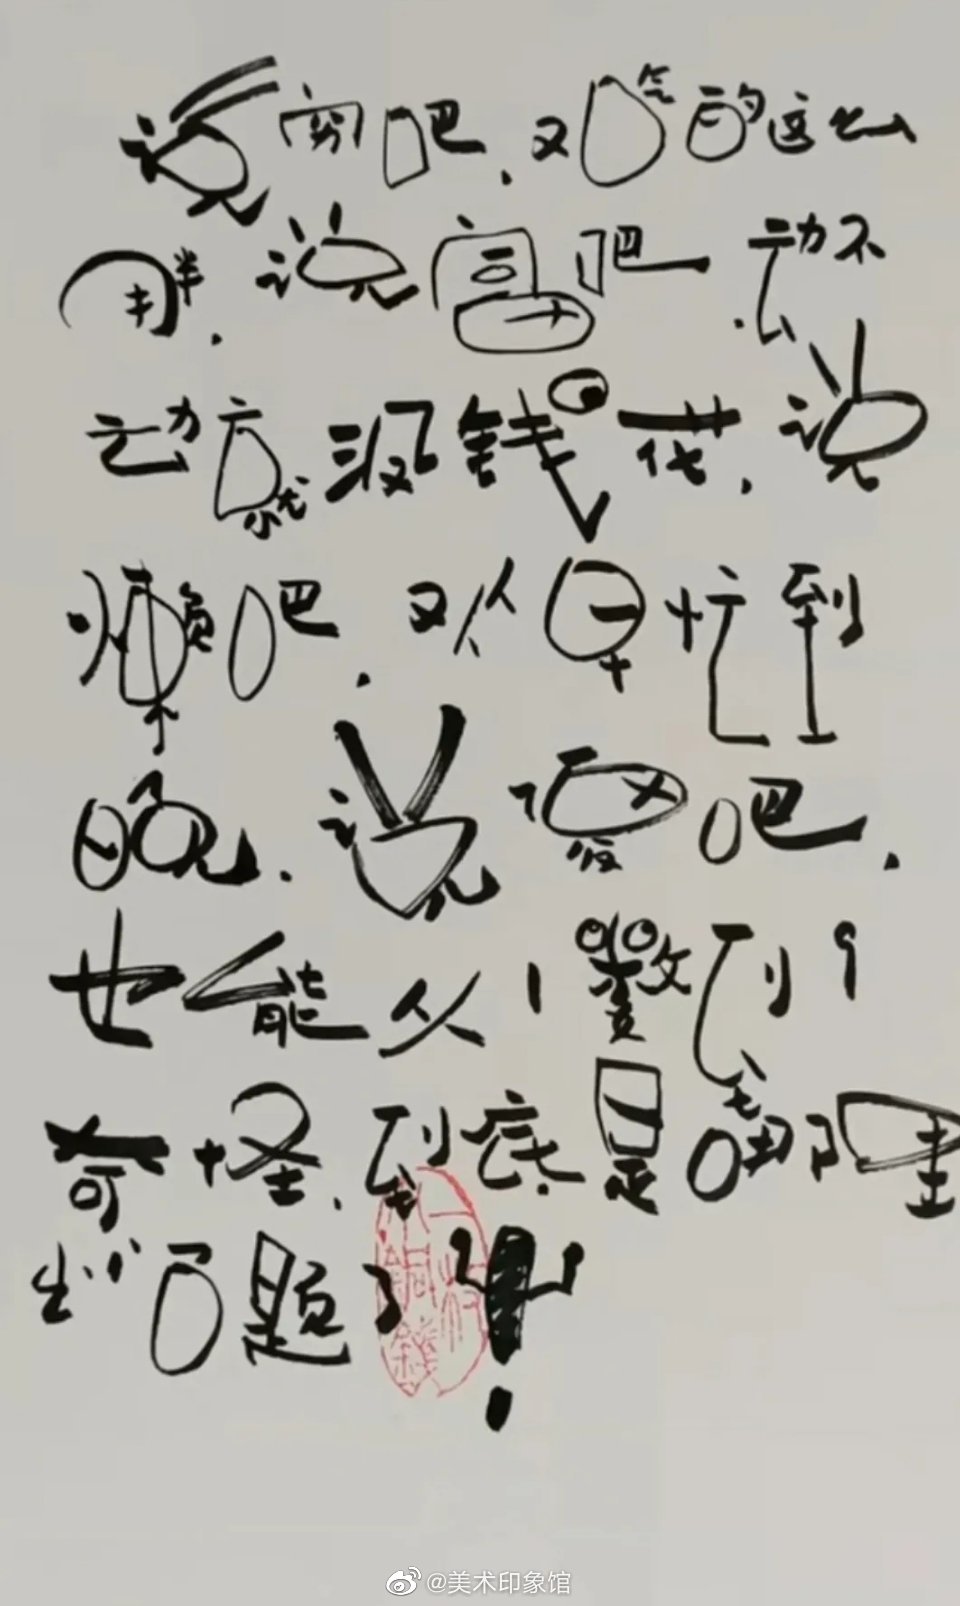 说穷吧，又吃的这么
胖，说富吧，动不
动就没钱花，说
懒吧，又从早忙到
晚，说傻吧，
也能从1数到9
奇怪，到底是哪里
出问题了！
@美术印象馆